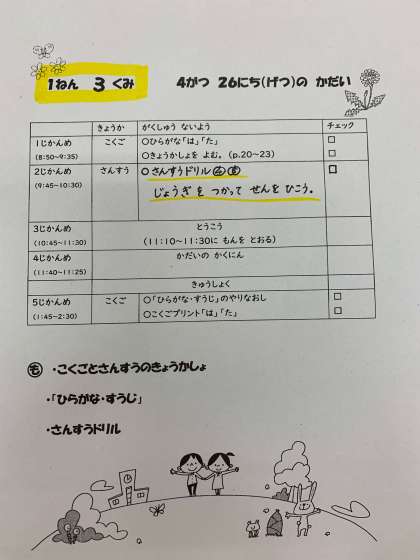 1ねん 3 くみ
4がつ 26にち(げつ)の かだい
きょうか がくしゅう ないよう チェック
1じかんめ
(8:50~9:35)
こくご
○ひらがな「は」「た」 □
○きょうかしょを よむ。(p.20~23) □
2じかんめ
(9:45~10:30)
さんすう
○さんすうドリル □
じょうぎを つかって せんを ひこう。
3じかんめ
(10:45~11:30)
とうこう
(11:10~11:30に もんを とおる)
4じかんめ
(11:40~11:25)
かだいの かくにん
きゅうしょく
5じかんめ
(1:45~2:30)
こくご
○「ひらがな・すうじ」のやりなおし □
○こくごプリント「は」「た」 □
も ・こくごとさんすうのきょうかしょ
・「ひらがな・すうじ」
・さんすうドリル